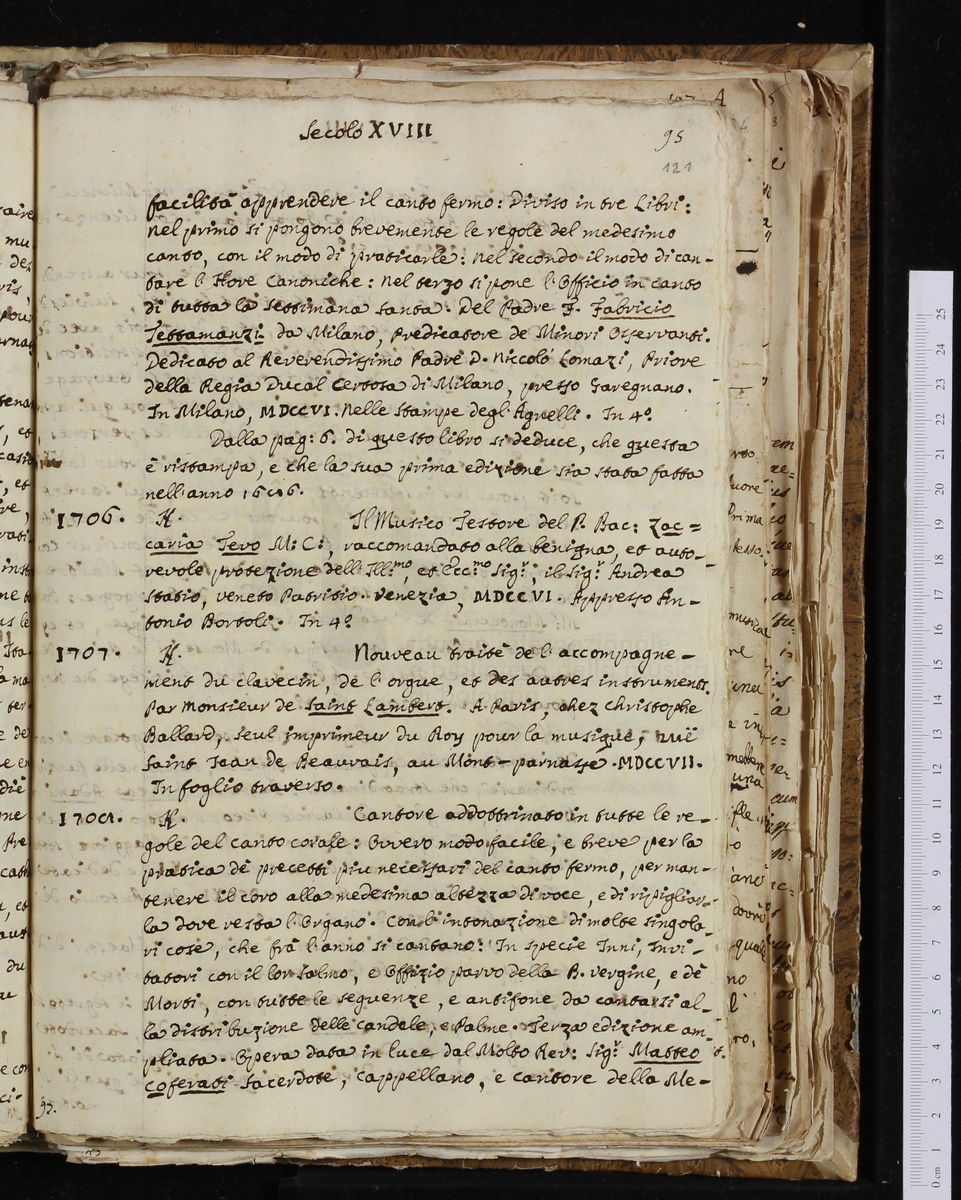 Secolo XVIII
95
121
facilità apprendere il canto fermo: Diviso in tre Libri:
nel primo si pongono brevemente le regole del medesimo
canto, con il modo di praticarle: nel secondo il modo di can-
tare l'Hore Canoniche: nel terzo si pone l'Officio in canto
di tutta la Settimana Santa. Del Padre F. Fabricio
Tettamanzi da Milano, Predicatore de Minori Osservanti.
Dedicato al Reverendissimo Padre D. Niccolò Lomazi, Priore
della Regia Ducal Certosa di Milano, presso Garegnano.
In Milano, MDCCVI. nelle stampe degl'Agnelli. In 4º.
Dalla pag: 6. di questo libro si deduce, che questa
è ristampa, e che la sua prima edizione sia stata fatta
nell'anno
1706. Il Musico Testore del P. Bac: Zac=
caria Tevo M: C:, raccomandato alla benigna, et auto-
revole protezione dell'Ill.mo, et Ecc.mo Sig.r, il Sig.r Andrea
Statio, Veneto Patritio. Venezia, MDCCVI. Appresso An-
tonio Bortoli. In 4º
1707. Nouveau traité de l'accompagne-
ment du clavecin, de l'orgue, et des autres instruments.
Par Monsieur de Saint Lambert. A Paris, chez Christophe
Ballard, seul imprimeur du Roy pour la musique, ruë
Saint Jean de Beauvais, au Mont-parnasse. MDCCVII.
In foglio traverso.
Cantore addottrinato in tutte le re-
gole del canto corale: Ovvero modo facile, e breve per la
pratica dè precetti più necessari del canto fermo, per man-
tenere il coro alla medesima altezza di voce, e di ripigliar-
la dove resta l'Organo. Con l'intonazione di molte singola-
ri cose, che frà l'anno si cantano: In specie Inni, Invi-
tatori con il lor salmo, e Offizio parvo della B. Vergine, e dè
Morti, con tutte le sequenze, e antifone da cantarsi al-
la distribuzione delle candele, e Palme. Terza edizione am-
pliata. Opera data in luce dal Molto Rev: Sig.r Matteo
Coferati Sacerdote, Cappellano, e cantore della Me-
95.